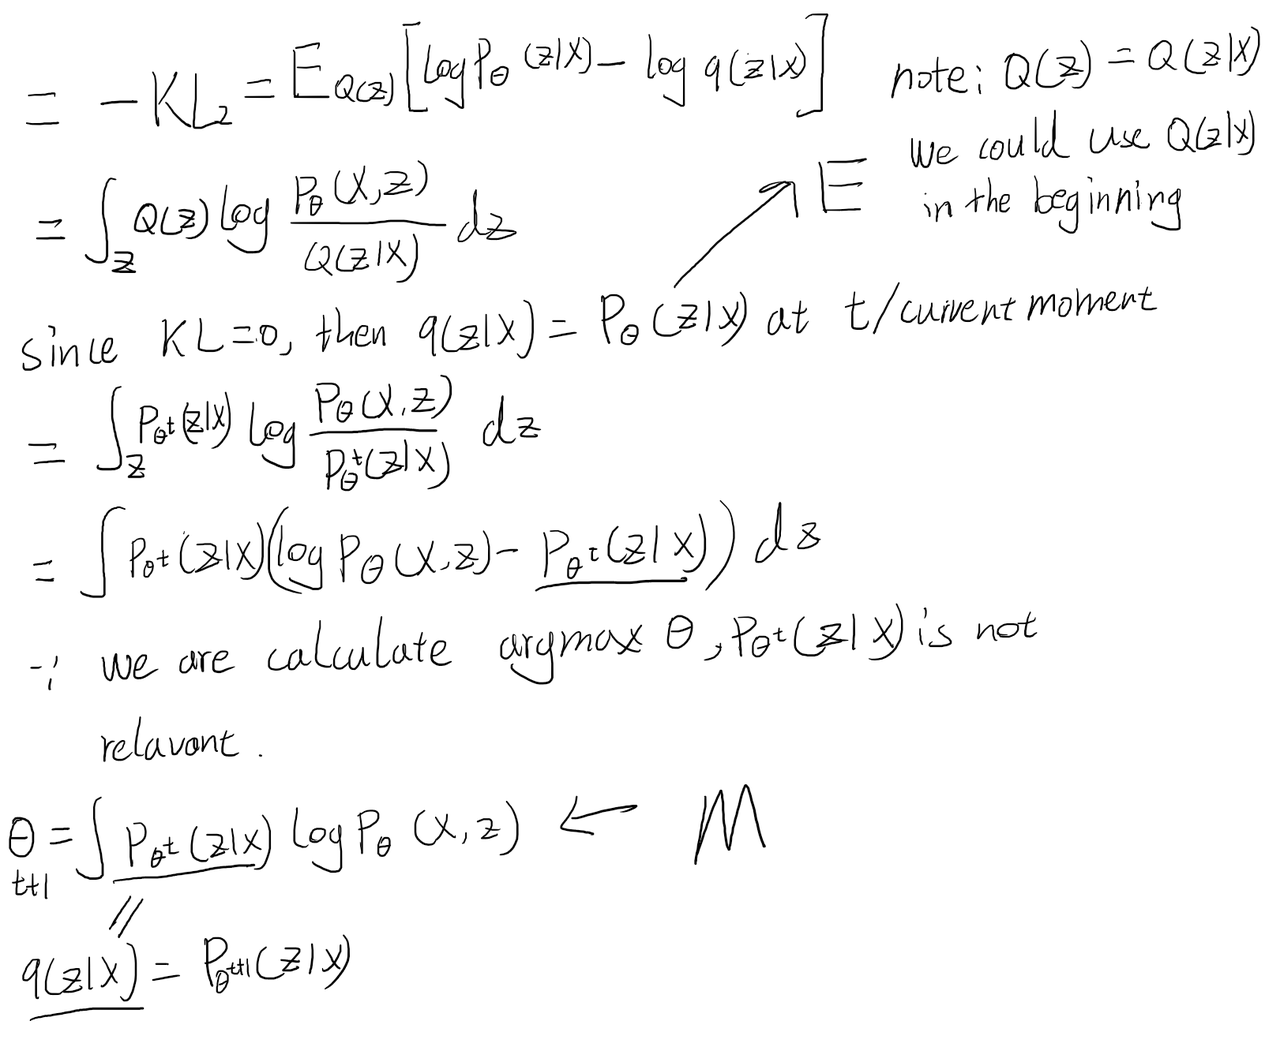 = -KL₂ = E_{Q(z)} [log P_θ (z|x) - log q(z|x)]
note: Q(z) = Q(z|x)
we could use Q(z|x)
in the beginning
= ∫_z Q(z) log P_θ(x,z) / Q(z|x) dz
E
since KL=0, then q(z|x) = P_θ(z|x) at t/current moment
= ∫_z P_θᵗ(z|x) log P_θ(x,z) / P_θᵗ(z|x) dz
= ∫ P_θᵗ(z|x)(log P_θ(x,z) - P_θᵗ(z|x)) dz
∵ we are calculate argmax θ, P_θᵗ(z|x) is not
relavant.
θ_{t+1} = ∫ P_θᵗ(z|x) log P_θ (x,z) ← M
//
q(z|x) = P_θᵗ⁺¹(z|x)